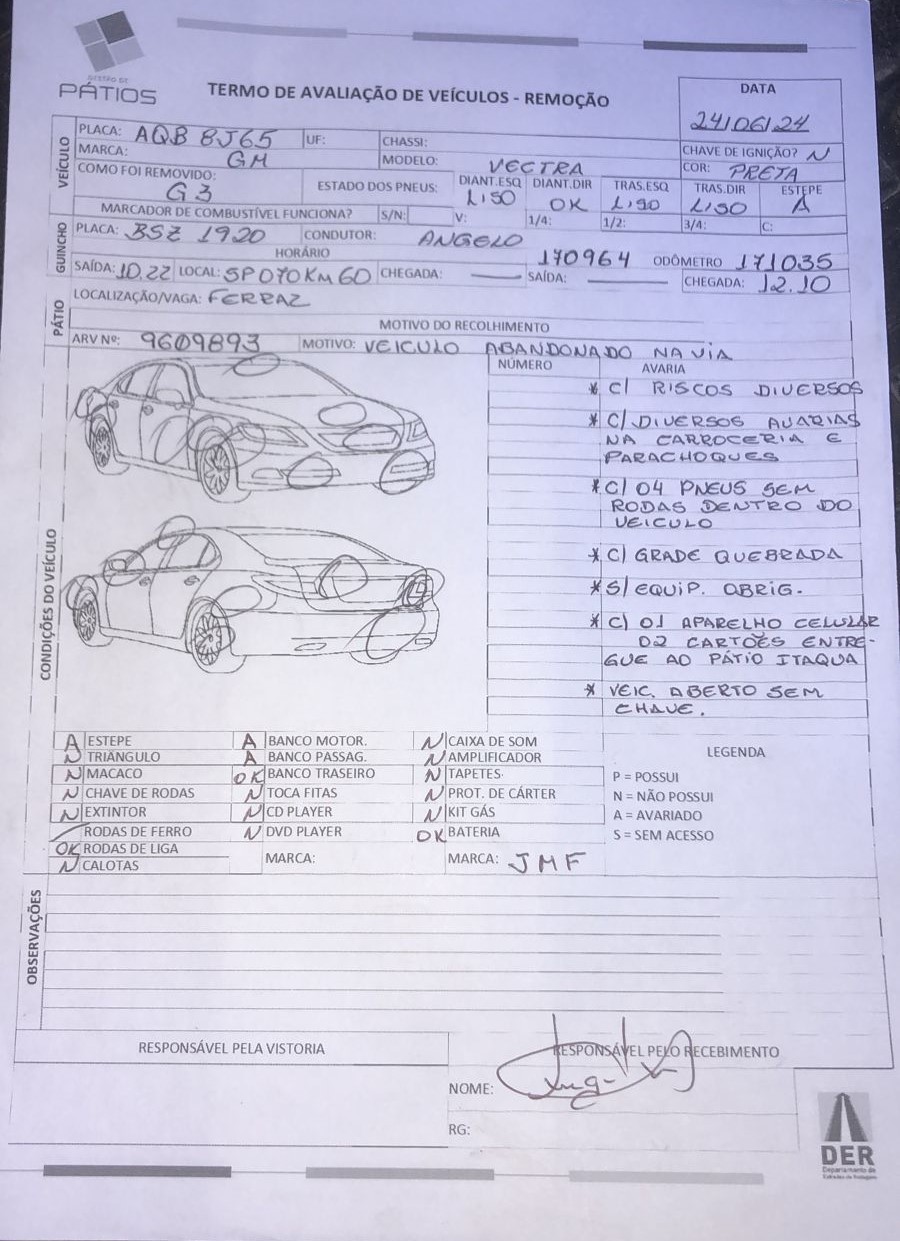 GESTÃO DE
PÁTIOS
TERMO DE AVALIAÇÃO DE VEÍCULOS - REMOÇÃO
DATA
24/06/24
VEÍCULO
PLACA: AQB 8J65 UF: CHASSI:
MARCA: GM MODELO: VECTRA
CHAVE DE IGNIÇÃO? N
COR: PRETA
COMO FOI REMOVIDO: G3
ESTADO DOS PNEUS: DIANT.ESQ LISO DIANT.DIR OK TRAS.ESQ LISO TRAS.DIR LISO ESTEPE A
MARCADOR DE COMBUSTÍVEL FUNCIONA? S/N: V: 1/4: 1/2: 3/4: C:
GUINCHO
PLACA: BSZ 1920 CONDUTOR: ANGELO
HORÁRIO 170964 ODÔMETRO 171035
SAÍDA: 10.22 LOCAL: SP070KM60 CHEGADA: SAÍDA: CHEGADA: 12.10
PÁTIO
LOCALIZAÇÃO/VAGA: FERRAZ
MOTIVO DO RECOLHIMENTO
ARV Nº: 9609893 MOTIVO: VEICULO ABANDONADO NA VIA
CONDIÇÕES DO VEÍCULO
NÚMERO AVARIA
* C/ RISCOS DIVERSOS
* C/ DIVERSOS AVARIAS
NA CARROCERIA E
PARACHOQUES
* C/ 04 PNEUS SEM
RODAS DENTRO DO
VEICULO
* C/ GRADE QUEBRADA
* S/ EQUIP. OBRIG.
* C/ 01 APARELHO CELULAR
02 CARTÕES ENTRE-
GUE AO PÁTIO ITAQUA
* VEIC. ABERTO SEM
CHAVE.
A ESTEPE A BANCO MOTOR. N CAIXA DE SOM
N TRIÂNGULO A BANCO PASSAG. N AMPLIFICADOR
N MACACO OK BANCO TRASEIRO N TAPETES
N CHAVE DE RODAS N TOCA FITAS N PROT. DE CÁRTER
N EXTINTOR N CD PLAYER N KIT GÁS
RODAS DE FERRO N DVD PLAYER OK BATERIA
OK RODAS DE LIGA MARCA: MARCA: JMF
N CALOTAS
LEGENDA
P = POSSUI
N = NÃO POSSUI
A = AVARIADO
S = SEM ACESSO
OBSERVAÇÕES
RESPONSÁVEL PELA VISTORIA
RESPONSÁVEL PELO RECEBIMENTO
NOME:
RG:
DER
Departamento de
Estradas de Rodagem